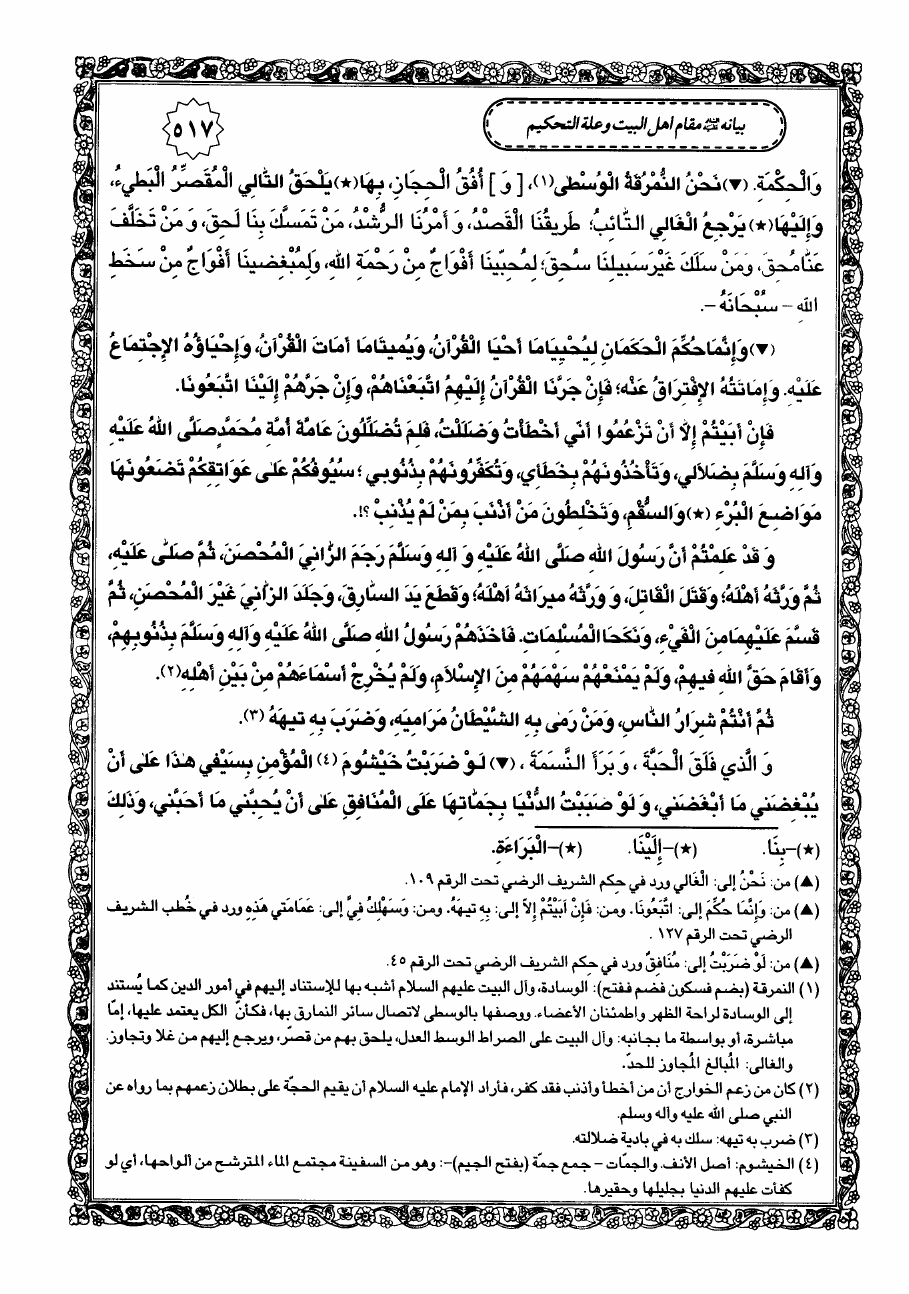 بيانه ﷺ مقام اهل البيت وعلة التحكيم
٥١٧
وَالْحِكْمَةِ. (▼) نَحْنُ النُّمْرُقَةُ الْوُسْطٰى(١)، [ وَ ] أُفُقُ الْحِجَازِ، بِهَا(★) يَلْحَقُ التَّالِي الْمُقَصِّرُ الْبَطِيءُ،
وَإِلَيْهَا(★) يَرْجِعُ الْغَالِي التَّائِبُ؛ طَرِيقُنَا الْقَصْدُ، وَ أَمْرُنَا الرُّشْدُ، مَنْ تَمَسَّكَ بِنَا لَحِقَ، وَ مَنْ تَخَلَّفَ
عَنَّا مُحِقَ، وَمَنْ سَلَكَ غَيْرَ سَبِيلِنَا سُحِقَ؛ لِمُحِبِّينَا أَفْوَاجٌ مِنْ رَحْمَةِ اللهِ، وَلِمُبْغِضِينَا أَفْوَاجٌ مِنْ سَخَطِ
اللهِ – سُبْحَانَهُ –.
(▼) وَإِنَّمَا حُكِّمَ الْحَكَمَانِ لِيُحْيِيَا مَا أَحْيَا الْقُرْآنُ، وَيُمِيتَا مَا أَمَاتَ الْقُرْآنُ، وَإِحْيَاؤُهُ الإِجْتِمَاعُ
عَلَيْهِ. وَإِمَاتَتُهُ الإِفْتِرَاقُ عَنْهُ؛ فَإِنْ جَرَّنَا الْقُرْآنُ إِلَيْهِمُ اتَّبَعْنَاهُمْ، وَإِنْ جَرَّهُمْ إِلَيْنَا اتَّبَعُونَا.
فَإِنْ أَبَيْتُمْ إِلاَّ أَنْ تَزْعُمُوا أَنّي أَخْطَأْتُ وَضَلَلْتُ، فَلِمَ تُضَلِّلُونَ عَامَّةَ أُمَّةِ مُحَمَّدٍ صَلَّى اللهُ عَلَيْهِ
وَآلِهِ وَسَلَّمَ بِضَلاَلي، وَتَأْخُذُونَهُمْ بِخَطَأِي، وَتُكَفِّرُونَهُمْ بِذُنُوبي ؛ سُيُوفُكُمْ عَلىٰ عَوَاتِقِكُمْ تَضَعُونَهَا
مَوَاضِعَ الْبُرْءِ (★) وَالسُّقْمِ، وَتَخْلِطُونَ مَنْ أَذْنَبَ بِمَنْ لَمْ يُذْنِبْ ؟!.
وَ قَدْ عَلِمْتُمْ أَنَّ رَسُولَ اللهِ صَلَّى اللهُ عَلَيْهِ وَ آلِهِ وَسَلَّمَ رَجَمَ الزَّانِيَ الْمُحْصَنَ، ثُمَّ صَلّىٰ عَلَيْهِ،
ثُمَّ وَرَّثَهُ أَهْلَهُ؛ وَقَتَلَ الْقَاتِلَ، وَ وَرَّثَهُ ميرَاثَهُ أَهْلَهُ؛ وَقَطَعَ يَدَ السَّارِقِ، وَجَلَدَ الزَّانِيَ غَيْرَ الْمُحْصَنِ، ثُمَّ
قَسَّمَ عَلَيْهِمَا مِنَ الْفَيْءِ، وَنَكَحَا الْمُسْلِمَاتِ. فَأَخَذَهُمْ رَسُولُ اللهِ صَلَّى اللهُ عَلَيْهِ وَآلِهِ وَسَلَّمَ بِذُنُوبِهِمْ،
وَأَقَامَ حَقَّ اللهِ فيهِمْ، وَلَمْ يَمْنَعْهُمْ سَهْمَهُمْ مِنَ الإِسْلاَمِ، وَلَمْ يُخْرِجْ أَسْمَاءَهُمْ مِنْ بَيْنِ أَهْلِهِ(٢).
ثُمَّ أَنْتُمْ شِرَارُ النَّاسِ، وَمَنْ رَمٰى بِهِ الشَّيْطَانُ مَرَامِيَهِ، وَضَرَبَ بِهِ تيهَهُ (٣).
وَ الَّذي فَلَقَ الْحَبَّةَ ، وَ بَرَأَ النَّسَمَةَ ، (▼) لَوْ ضَرَبْتُ خَيْشُومَ (٤) الْمُؤْمِنِ بِسَيْفي هٰذَا عَلٰى أَنْ
يُبْغِضَني مَا أَبْغَضَني، وَ لَوْ صَبَبْتُ الدُّنْيَا بِجَمَّاتِهَا عَلَى الْمُنَافِقِ عَلىٰ أَنْ يُحِبَّني مَا أَحَبَّني، وَذٰلِكَ
(★)–بِنَا. (★)–إِلَيْنَا. (★)–الْبَرَاءَةِ.
(▲) من: نَحْنُ إلى: الْغَالي ورد في حِكم الشريف الرضي تحت الرقم ١٠٩.
(▲) من: وَإِنَّمَا حُكِّمَ إلى: اتَّبَعُونَا. ومن: فَإِنْ أَبَيْتُمْ إِلاَّ إلى: بِهِ تيهَهُ. ومن: وَسَهْلِكُ فِيَّ إلى: عَمَامَتي هَذِهِ ورد في خُطب الشريف
الرضي تحت الرقم ١٢٧ .
(▲) من: لَوْ ضَرَبْتُ إلى: مُنَافِقٌ ورد في حِكم الشريف الرضي تحت الرقم ٤٥.
(١) النمرقة (بضم فسكون فضم ففتح): الوسادة، وآل البيت عليهم السلام أشبه بها للإستناد إليهم في أمور الدين كما يُستند
إلى الوسادة لراحة الظهر واطمئنان الأعضاء. ووصفها بالوسطى لاتصال سائر النمارق بها، فكأنّ الكل يعتمد عليها، إمّا
مباشرة، أو بواسطة ما بجانبه: وآل البيت على الصراط الوسط العدل، يلحق بهم من قصّر، ويرجع إليهم من غلا وتجاوز.
والغالي: المُبالغ المُجاوز للحدّ.
(٢) كان من زعم الخوارج أن من أخطأ وأذنب فقد كفر، فأراد الإمام عليه السلام أن يقيم الحجّة على بطلان زعمهم بما رواه عن
النبي صلى الله عليه وآله وسلم.
(٣) ضرب به تيهه: سلك به في بادية ضلالته.
(٤) الخيشوم: أصل الأنف. والجمّات – جمع جمّة (بفتح الجيم)–: وهو من السفينة مجتمع الماء المترشح من ألواحها، أي لو
كفأت عليهم الدنيا بجليلها وحقيرها.